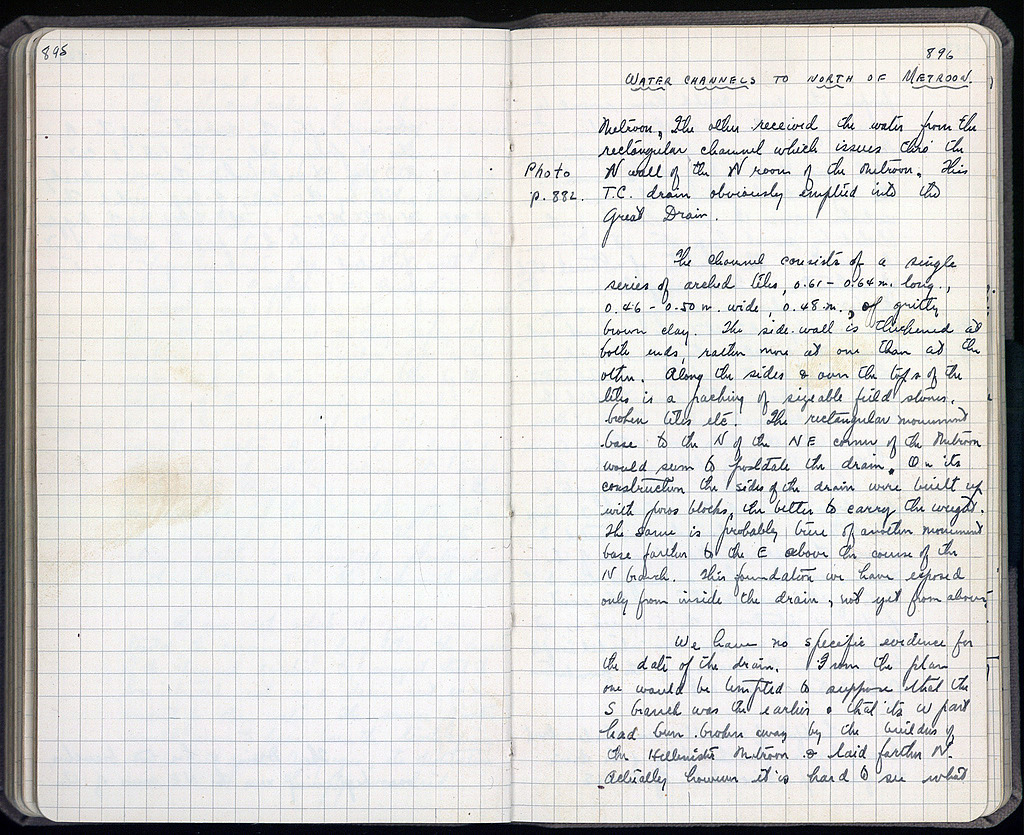 895
896
WATER CHANNELS TO NORTH OF METROON.
Metroon. The other received the water from the
rectangular channel which issues thro' the
Photo N wall of the N room of the Metroon. This
p. 882. T.C. drain obviously emptied into the
Great Drain.
The channel consists of a single
series of arched tiles, 0.61 - 0.64 m. long,
0.46 - 0.50 m. wide, 0.48 m., of gritty
brown clay. The side wall is thickened at
both ends, rather more at one than at the
other. Along the sides & over the tops of the
tiles is a packing of sizeable field stones,
broken tiles etc. The rectangular monument
base to the N of the NE corner of the Metroon
would seem to postdate the drain. On its
construction the sides of the drain were built up
with poros blocks, the better to carry the weight.
The same is probably true of another monument
base farther to the E above the course of the
N branch. This foundation we have exposed
only from inside the drain, not yet from above.
We have no specific evidence for
the date of the drain. From the plan
one would be tempted to suppose that the
S branch was the earlier & that its W part
had been broken away by the builders of
the Hellenistic Metroon & laid farther N.
Actually however it is hard to see what